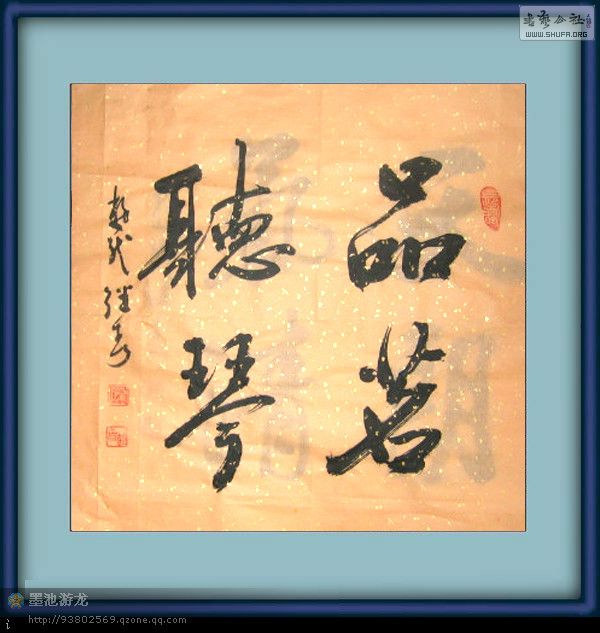 品茗
聽琴
书艺公社
WWW.SHUFA.ORG
墨池游龙
http://93802569.qzone.qq.com